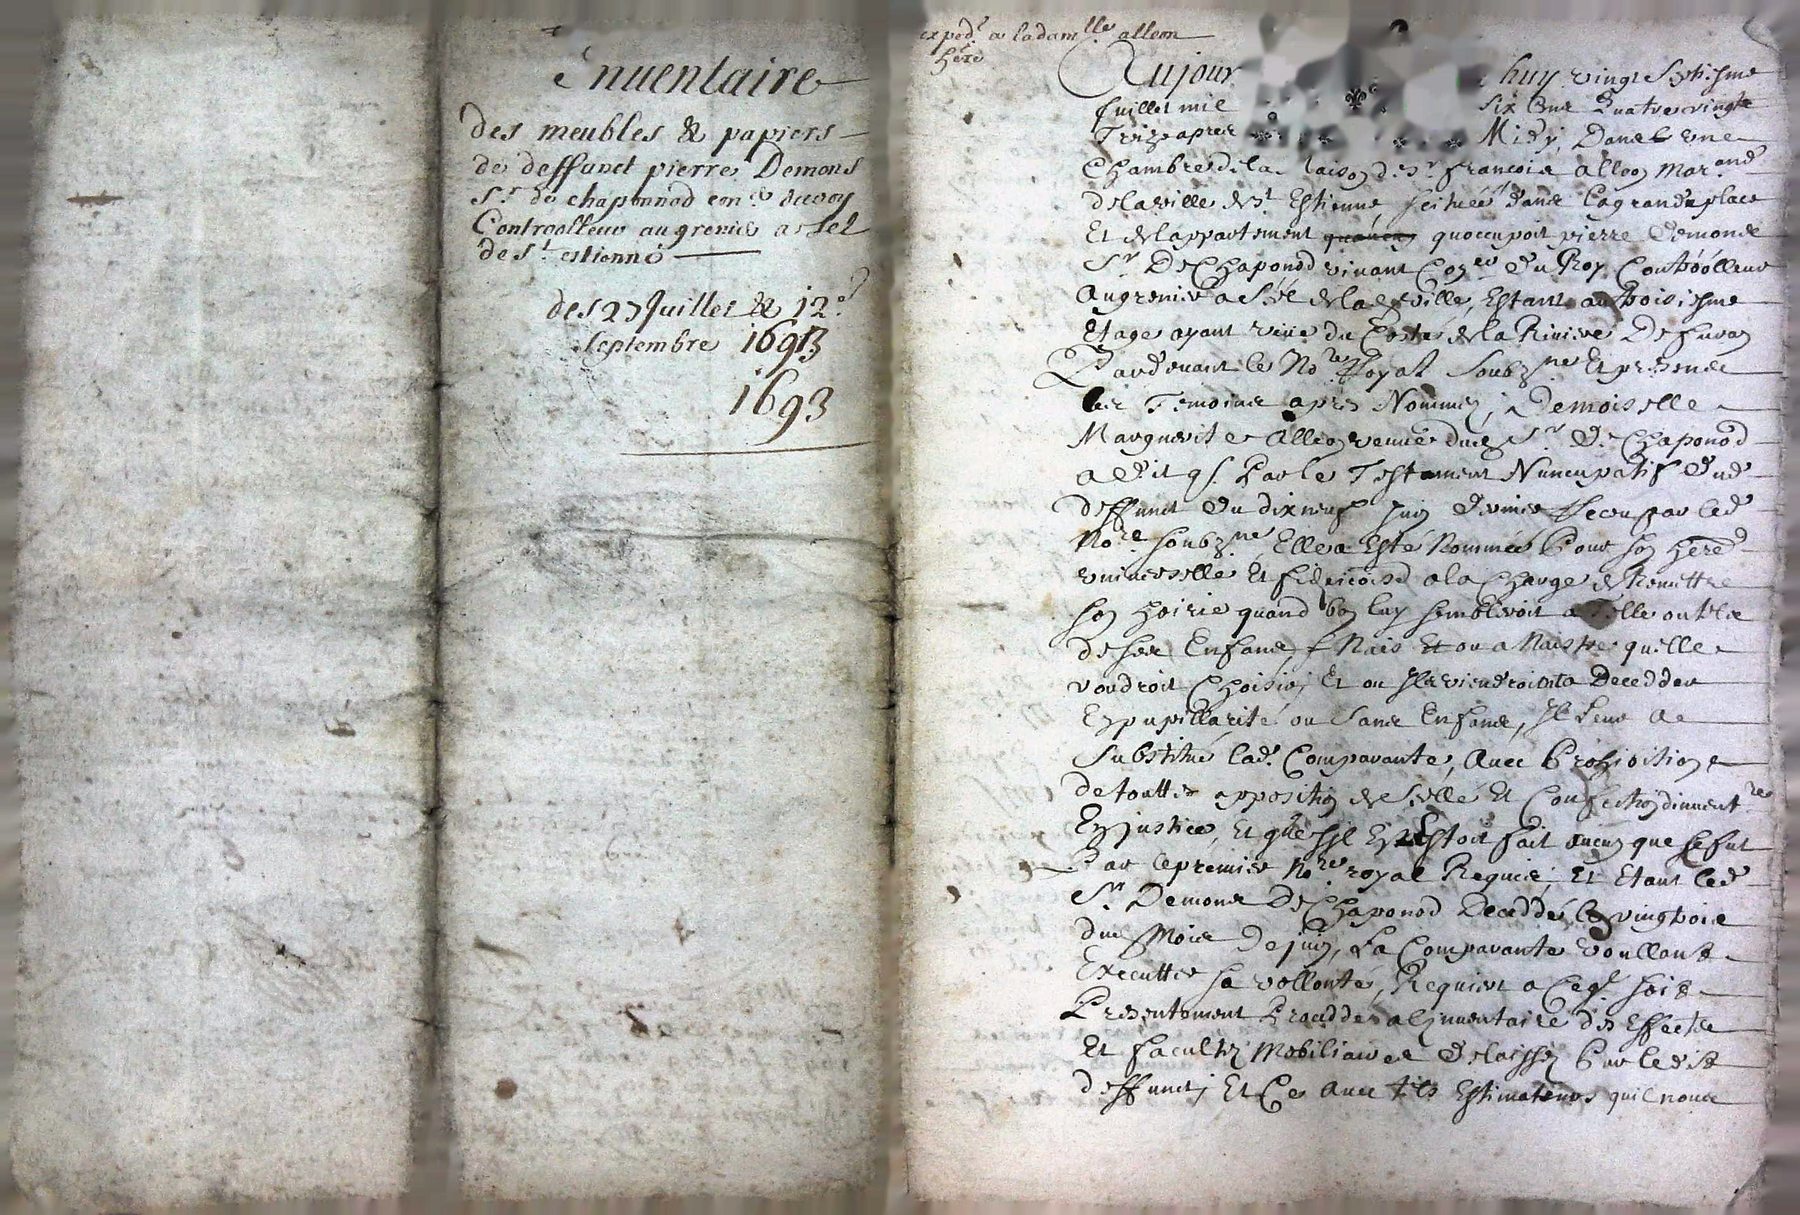 Inuentaire
des meubles & papiers
de deffunct pierre Demons
Sr. de chaponnod con.er du roy
Controolleur au grenier a sel
de St. estienne
des 27 Juillet & 12e
septembre 1693
1693
exped.e a la dam.lle alleon
here
Aujour huy vingt septiesme
Juillet mil six cens quatre vingts
Treize apres Midy, Dans une
Chambre de la maison de sr. francois alleon Marchand
de la ville de St. Estienne scituée dans la grande place
Et de lappartement quoccupoit pierre Demons
Sr. De Chaponod vivant Con.er du Roy Controolleur
au grenier a Sel de lad. ville, Estant au troisiesme
Etage ayant veüe du Costé de la Riviere De furan
Pardevant le No.re Royal Soubz.né Et presence
des Temoins apres Nommez, Demoiselle
Marguerite Alleon veuve dud. Sr. De Chaponod
a dit q. Par le Testament Nuncupatif dud.
deffunct du dixneuf Juin dernier Receu par led.
No.re soubz.né Elle a Esté Nommée Pour son hered.
universelle Et fideicom. a la Charge de Remettre
son hoirie quand bon luy sembleroit a Telle ou tels
de ses Enfans Nais Et ou a Naistre quelle
voudroit Choisir, Et ou Ils viendroient a Decedder
En pupillarité ou sans Enfans, Il leur a
Substitué lad. Comparante, Avec Prohibition
de toutte apposition de Scellé Et Confection dinvent.re
En justice, Et que sil En Estoit fait aucun que ce fut
Par le premier No.re royal Requis, Et Etant led.
Sr. Demons De Chaponod Deceddé le vingtrois
dud. Mois De juin, La Comparante voullant
Executter sa vollonté, Requiert a Ce q. soit
Presentement Procedder a linventaire des Effects
Et facultez Mobiliaires delaissez Par ledit
deffunct, Et Ce avec tels Estimateurs quil nous